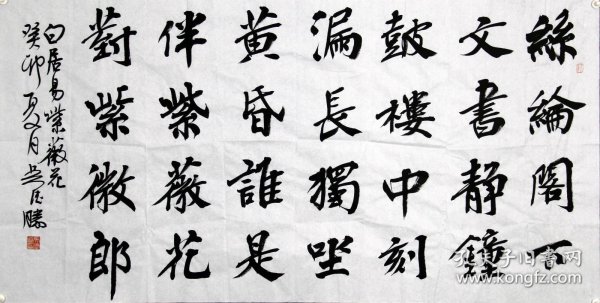 絲綸閣下
文書静鐘
鼓樓中刻
漏長獨坐
黄昏誰是
伴紫薇花
對紫微郎
白居易紫薇花
癸卯夏月
孔夫子旧书网
www.kongfz.com